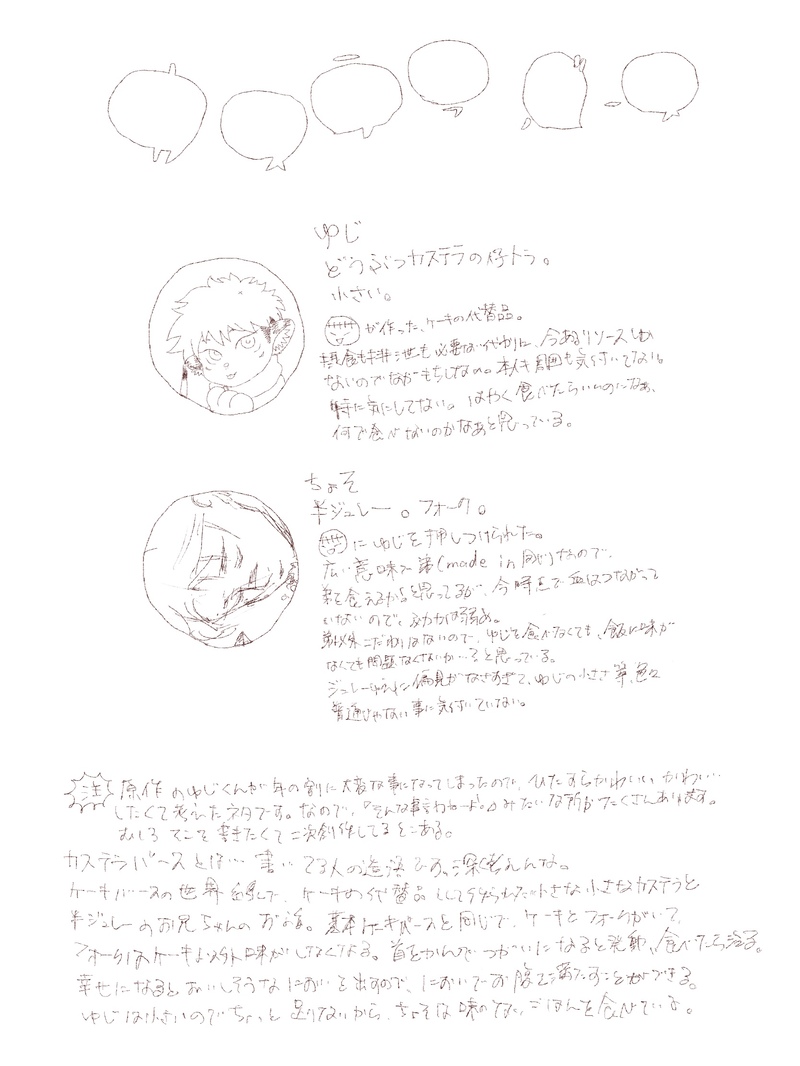 ゆじ
どうぶつカステラの仔トラ。
小さい。
が作った、ケーキの代替品。
摂食も排泄も必要ない代わりに、今あるリソースしか
ないのでながもちしない。本人も周囲も気付いてない。
特に気にしてない。はやく食べたらいいのになぁ、
何で食べないのかなぁと思っている。
ちょそ
半ジュレー。フォーク。
にゆじを押しつけられた。
広い意味で弟(made in 同じ)なので、
弟を食えるかよと思ってるが、今時点で血はつながって
いないので、ふみかは弱め。
弟以外こだわりはないので、ゆじを食べなくても、飯に味が
なくても問題なくないか…?と思っている。
ジュレーゆえに偏見がなさすぎて、ゆじの小ささ等、色々
普通じゃない事に気付いていない。
注 原作のゆじくんが年の割に大変な事になってしまったので、ひたすらかわいいかわいい…
したくて考えたネタです。なので、『そんな事言わねーよ。』みたいな所がたくさんあります。
むしろそこを書きたくて二次創作してるまである。
カステラバースとは… 書いてる人の造語です。深く考えんな。
ケーキバースの世界線で、ケーキの代替品として作られた小さな小さなカステラと
半ジュレーのお兄ちゃんのお話。基本はケーキバースと同じで、ケーキとフォークがいて、
フォークはケーキ以外味がしなくなる。首をかんでつがいになると発動、食べたら治る。
幸せになるとおいしそうなにおいを出すので、においでお腹を満たすことができる。
ゆじは小さいのでちょっと足りないから、ちょそは味のないごはんを食べている。